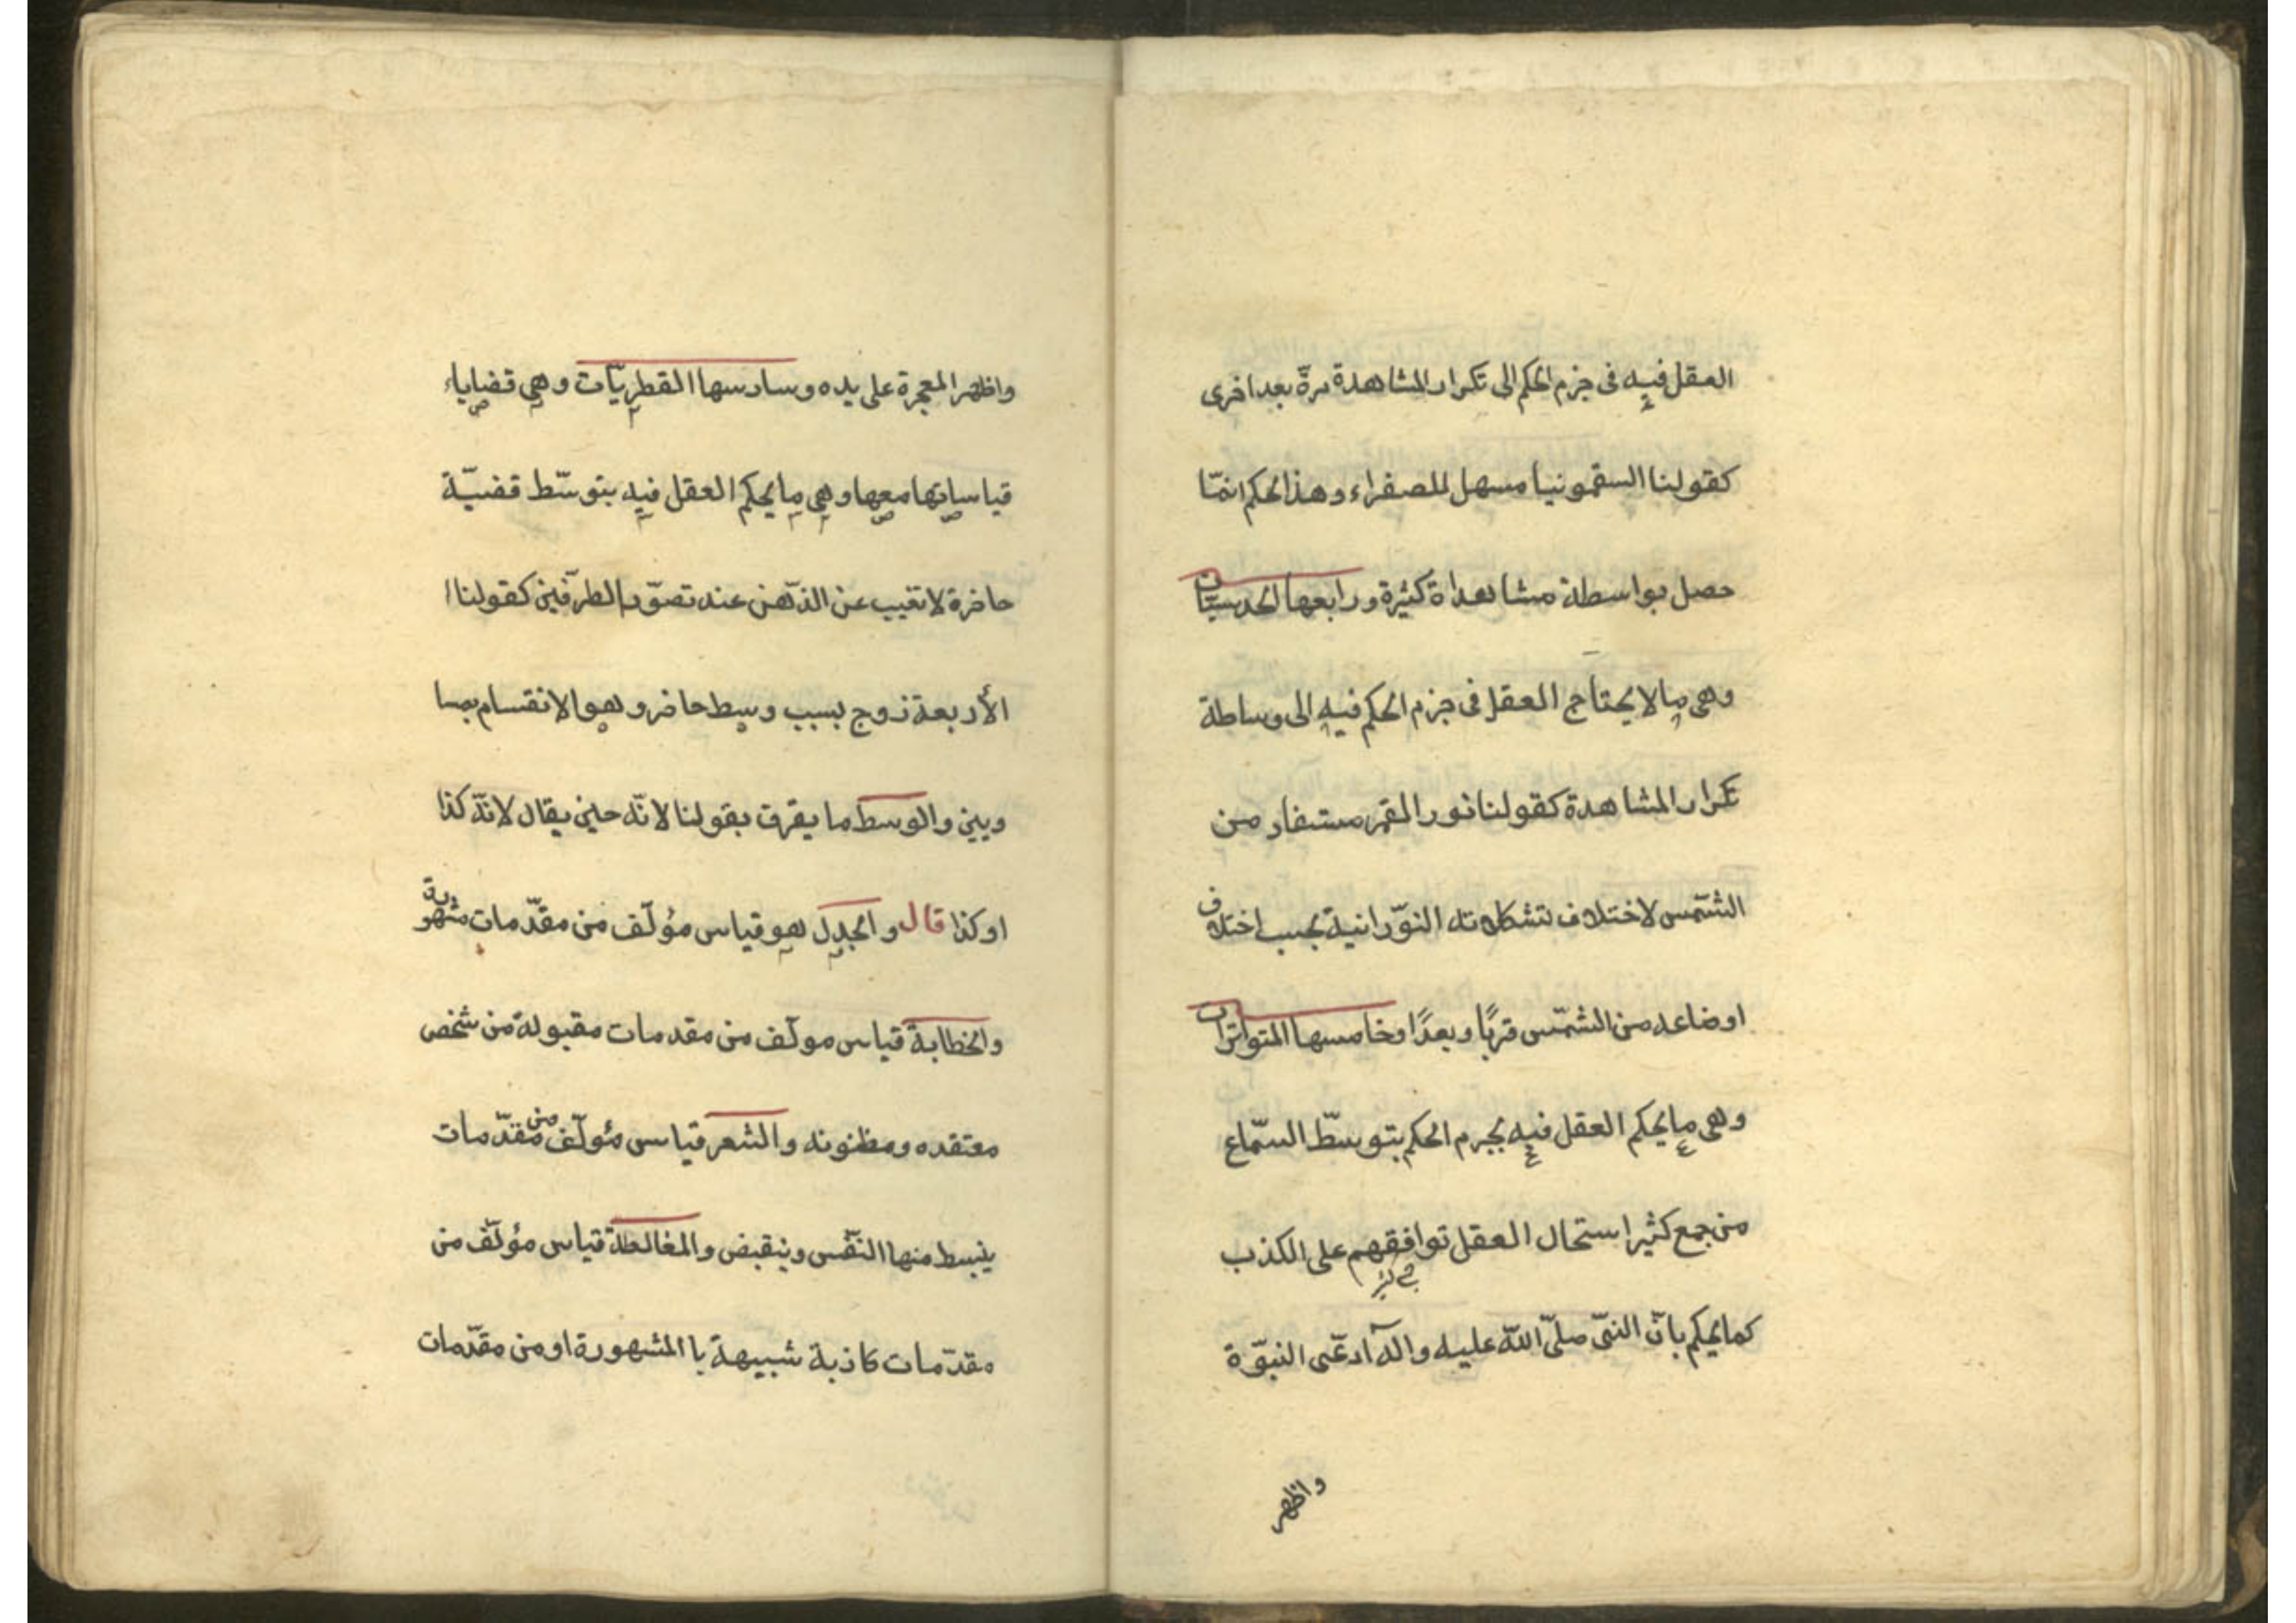 العقل فيه فى جزم الحكم الى تكرار المشاهدة مرّة بعد اخرى
كقولنا السقمونيا مسهل للصفراء وهذا الحكم انمّا
حصل بواسطة مشاهداة كثيرة ورابعها الحدسيّات
وهى ما لا يحتاج العقل فى جزم الحكم فيه الى وساطة
تكرار المشاهدة كقولنا نور القمر مستفاد من
الشّمس لاختلاف تشكلاته النوّرانية بحسب اختلاف
اوضاعه من الشمّس قربًا وبعدًا وخامسها المتواترات
وهى ما يحكم العقل فيه بجرم الحكم بتوسّط السمّاع
من جمع كثير استحال العقل توافقهم على الكذب
كما يحكم بانّ النبىّ صلىّ اللّه عليه وآله ادعّى النبوّة
واظهر
واظهر المعجزة على يده وسادسها القطريّات وهى قضاياء
قياساتها معها وهى ما يحكم العقل فيه بتوسّط قضيّة
حاضرة لا تغيب عن الذّهن عند تصوّر الطرّفين كقولنا ا
الأربعة زوج بسبب وسط حاضر وهو الانقسام بمسا
ويين والوسط ما يقرق بقولنا لانّه حين يقال لانّه كذا
او كذا قال والجدل هو قياس مؤلّف من مقدّمات مشهورة
والخطابة قياس مولّف من مقدمات مقبولة من شخص
معتقده ومظنونه والشعر قياس مؤلّف من مقدّمات
ينبسط منها النفّس وينقبض والمغالطة قياس مؤلّف من
مقدّمات كاذبة شبيهة با المشهورة او من مقدّمات